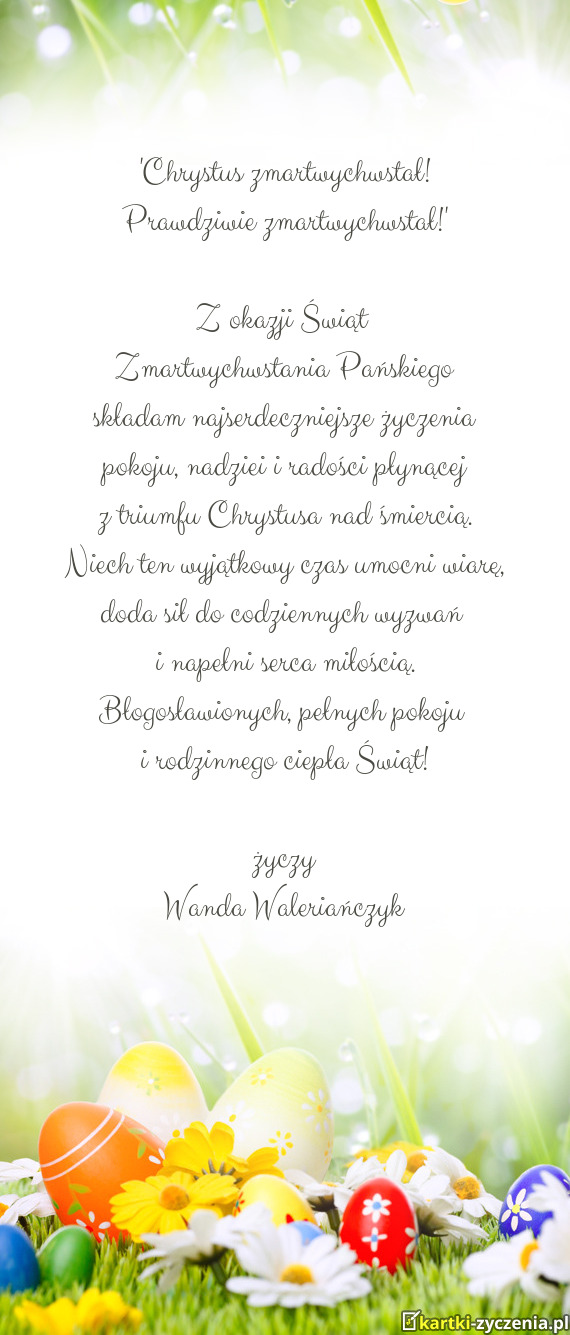 "Chrystus zmartwychwstał!
Prawdziwie zmartwychwstał!"
Z okazji Świąt
Zmartwychwstania Pańskiego
składam najserdeczniejsze życzenia
pokoju, nadziei i radości płynącej
z triumfu Chrystusa nad śmiercią.
Niech ten wyjątkowy czas umocni wiarę,
doda sił do codziennych wyzwań
i napełni serca miłością.
Błogosławionych, pełnych pokoju
i rodzinnego ciepła Świąt!
życzy
Wanda Waleriańczyk
kartki-zyczenia.pl